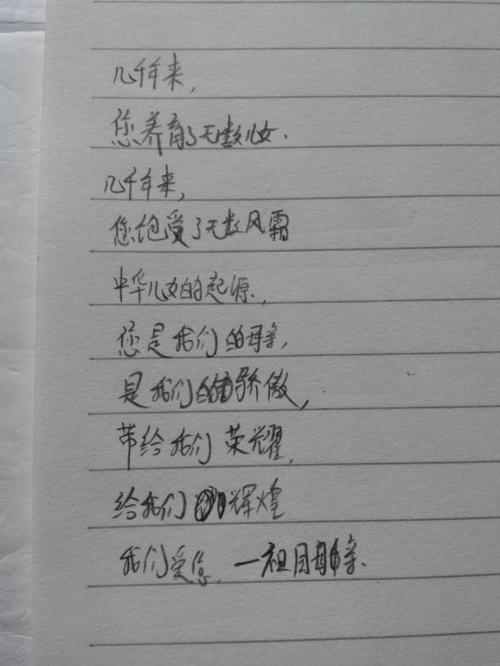 几千年来,
您养育了无数儿女.
几千年来,
您饱受了无数风霜
中华儿女的起源,
您是我们的母亲,
是我们的骄傲,
带给我们荣耀,
给我们辉煌
我们爱您,一祖国母亲.